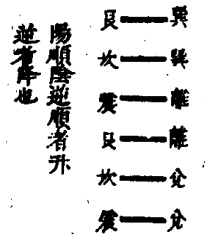 艮 — 巽
坎 — 巽
震 — 離
艮 — 離
坎 — 兌
震 — 兌
陽順陰逆順者升
逆者降也